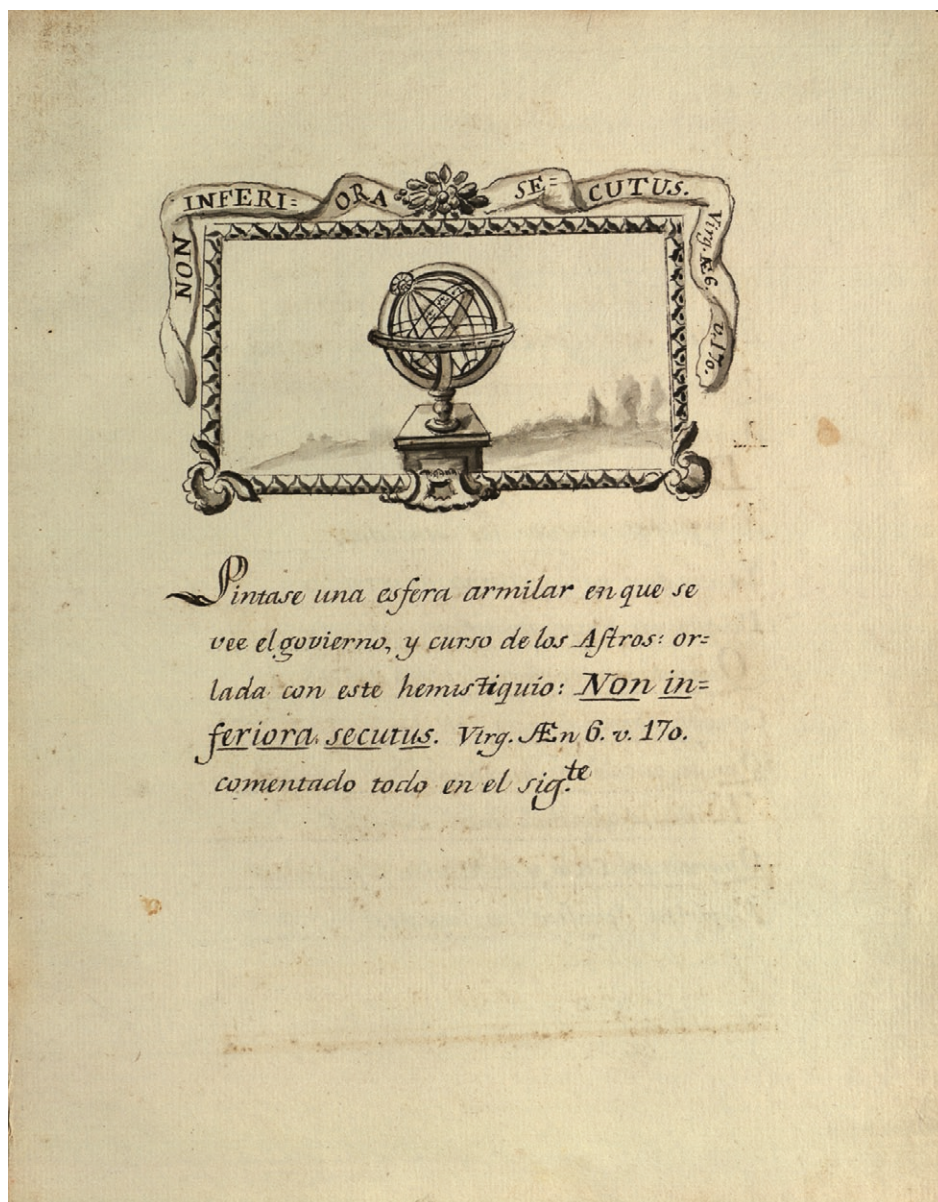 NON INFERI= ORA SE= CUTUS. Virg. Æ 6. v. 170.
Pintase una esfera armilar en que se
vee el govierno, y curso de los Astros: or=
lada con este hemistiquio: Non in=
feriora secutus. Virg. Æn 6. v. 170.
comentado todo en el sig.te